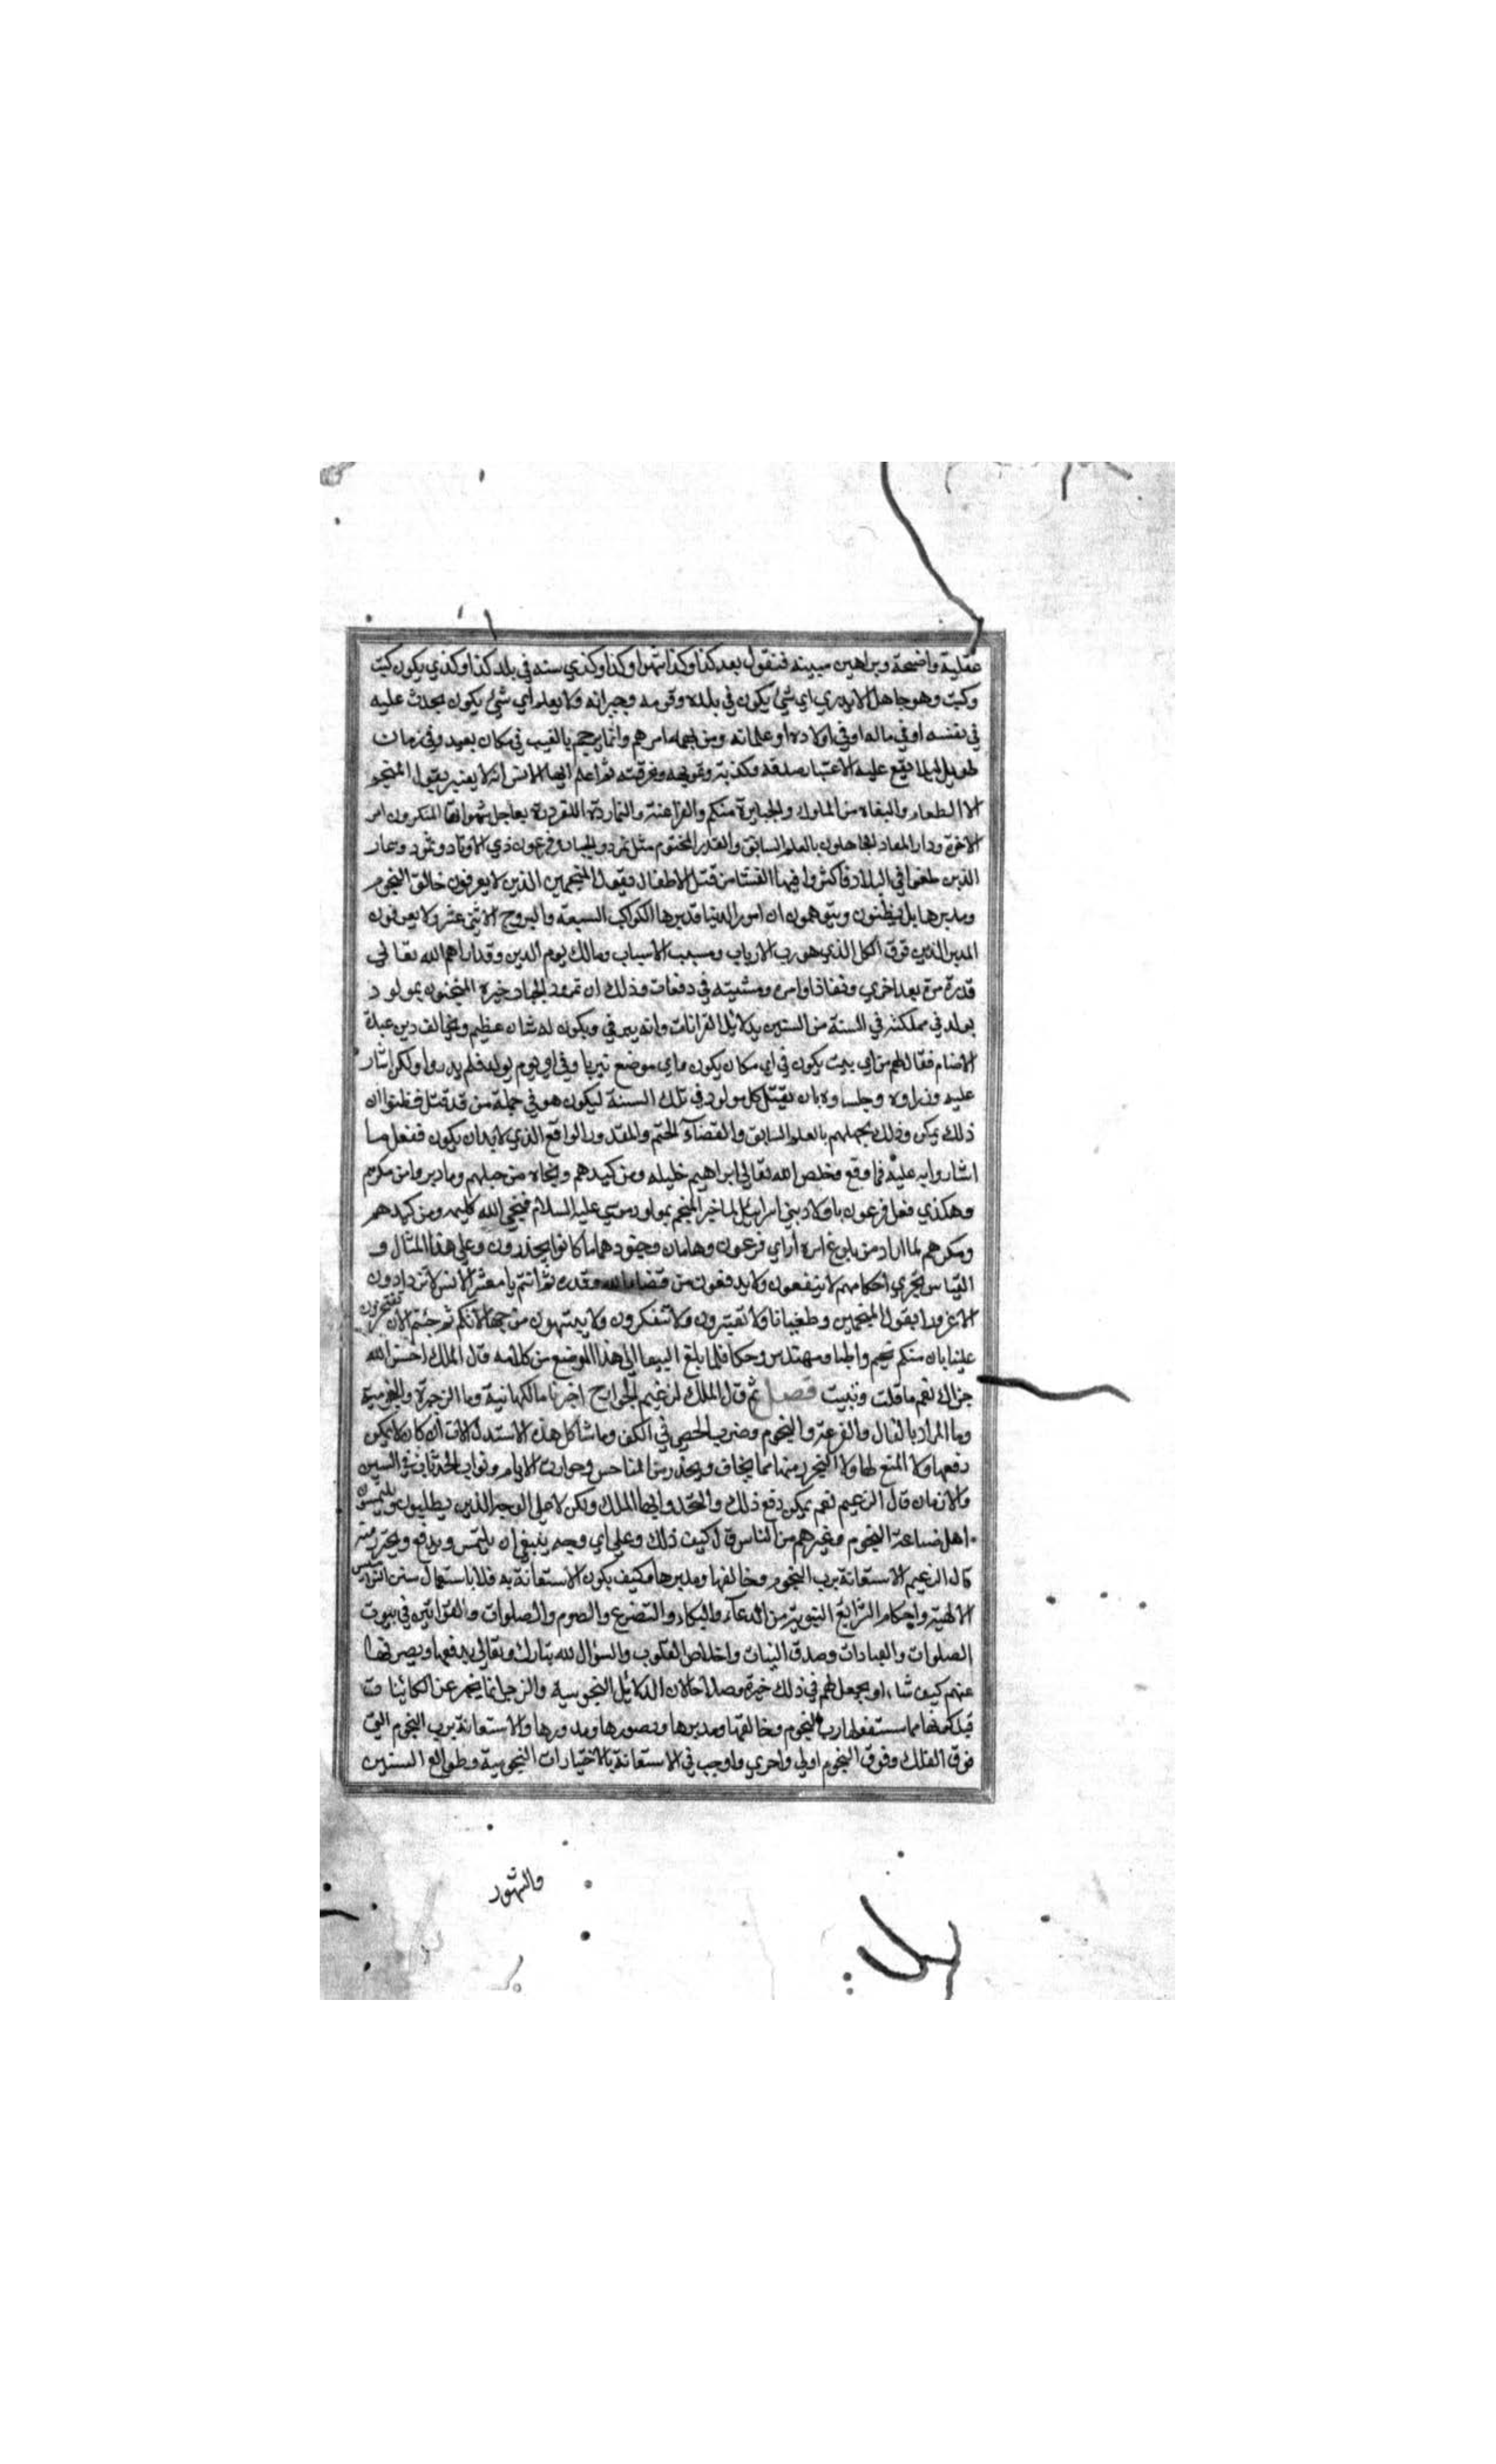 عقلية واضحة وبراهين مبينه فنقول بعد كذا وكذا شهرا وكذا وكذي سنه في بلد كذا وكذي يكون كيت
وكيت وهو جاهل لا يدري اي شئ يكون في بلده وقومه وجيرانه ولا يعلم اي شئ يكون يحدث عليه
في نفسه او في ماله او في اولاده او غلمانه ومن يهمه امرهم وانما يرجم بالغيب في مكان بعيد وفي زمان
طويل ليلا يقع عليه الاعتبار صدقه وكذبه وتمويهه ومخرقته ثم اعلم ايها الانس انه لا يغتر بقول المنجم
الا الطغاه والبغاه من الملوك والجبابرة منكم والفراعنة والنماردة المغرورة بعاجل شهواتها المنكرون امر
الاخرة ودار المعاد الجاهلون بالعلم السابق والقدر المحتوم مثل نمرود الجبار وفرعون ذي الاوتاد وثمود وعاد
الذين طغوا في البلاد فاكثروا فيها الفساد من قتل الاطفال فيقول المنجمين الذين لا يعرفون خالق النجوم
ومدبرها بل يظنون ويتوهمون ان امور الدنيا تدبرها الكواكب السبعة والبروج الاثني عشر ولا يعرفون
المدبر الذي فوق الكل الذي هو رب الارباب ومسبب الاسباب ومالك يوم الدين وقد اراهم الله تعالي
قدرة مرة بعد اخري ونفاذ اوامره ومشيته في دفعات وذلك ان نمرود الجبار خبره المنجمون بمولود
يولد في مملكته في السنة من السنين بدلائل القرانات وانه يربي ويكون له شان عظيم ويخالف دين عبدة
الاصنام فقال لهم من اي بيت يكون في اي مكان يكون واي موضع يربا وفي اي يوم يولد فلم يدروا ولكن اشار
عليه وزراوه وجلساوه بان يقتل كل مولود في تلك السنة ليكون هو في جملة من قد قتل فظنوا ان
ذلك يمكن وذلك بجهلهم بالعلم السابق والقضاء الحتم والمقدور الواقع الذي لا بد ان يكون ففعل ما
اشاروا به عليه فما وقع فخلص الله تعالي ابراهيم خليله ومن كيدهم ونجاه من حبلهم وما دبروا من مكرهم
وهكذي فعل فرعون باولاد بني اسرائيل لما خبر المنجم بمولد موسي عليه السلام فنجي الله كليمه ومن كيدهم
ومكرهم لما اراد من بلوغ امره اراي فرعون وهامان وجنودهما ما كانوا يحذرون وعلي هذا المثال و
القياس تجري احكامهم لا ينفعون ولا يدفعون من قضاء الله وقدره ثم انتم يا معشر الانس لا تزدادون
الا غرورا بقول المنجمين وطغيانا ولا تعتبرون ولا تتفكرون ولا ينتهون من جهالاتكم ثم جئتم الان تفتخرون
علينا بان منكم نجيم واطبا ومهندس وحكما فلما بلغ الببغا الي هذا الموضع من كلامه قال الملك احسن الله
جزاك نعم ما قلت وبينت فصل ثم قال الملك لزعيم الجوارح اخبرنا ما الكهانية وما الزجرة والنجومية
وما المراد بالفال والقرعة والنجوم وضرب الحصي في الكف وما شاكل هذه الاستدلالات ان كان لا يمكن
دفعها ولا المنع لها ولا التحرز منها مما يخاف ويحذر من المناحس وحوادث الايام ونوايب الحدثان في السنين
والازمان قال الزعيم نعم يمكن دفع ذلك والتحرز ايها الملك ولكن لا علي الوجه الذين يطلبون ويلتمسون
اهل صناعة النجوم وغيرهم من الناس قال كيف ذلك وعلي اي وجه ينبغي ان يلتمس ويدفع ويتحرز منه
قال الزعيم الاستعانة برب النجوم وخالقها ومدبرها وكيف يكون الاستعانة به فلا باستعمال سنن النواميس
الالهية واحكام الشرايع النبوية من الدعاء والبكاء والتضرع والصوم والصلوات والقرابين في بيوت
الصلوات والعبادات وصدق النيات واخلاص القلوب والسؤال لله تبارك وتعالي يدفعها ويصرفها
عنهم كيف شاء او يجعل لهم في ذلك خيرة وصلاحا لان الدلائل النجومية والزجر انما يخبر عن الكائنات
قبل كونها مما سيفعلها رب النجوم وخالقها ومدبرها ومصورها ومدورها والاستعانة برب النجوم التي
فوق الفلك وفوق النجوم اولي واحري واوجب في الاستعانة بالاختيارات النجومية وطوالع السنين
والشهور